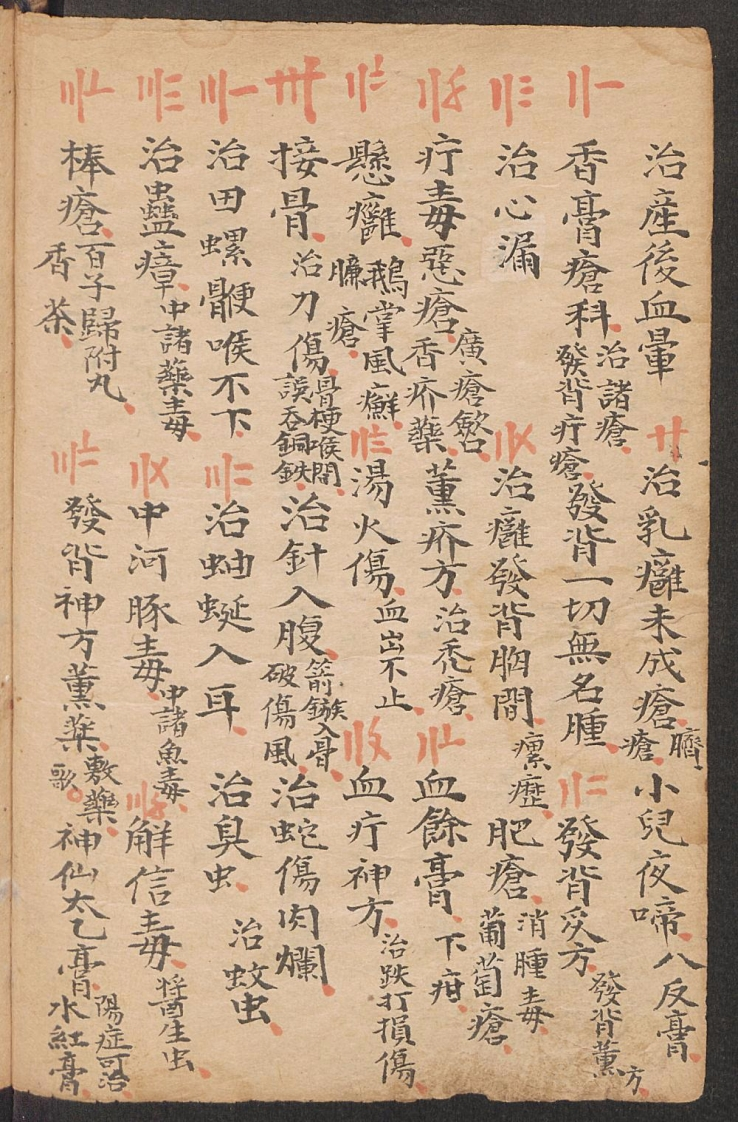 治產後血暈 卄 治乳癰未成瘡 臍瘡 小兒夜啼 八反膏
〢一 香膏瘡科 治諸瘡 發背疔瘡 發背一切無名腫 〢二 發背灸方 發背薰方
〢三 治心漏 〢〤 治癰發背胸間 瘰癧 肥瘡 消腫毒 葡萄瘡
疔毒惡瘡 廣瘡 香疥藥 薰疥方 治禿瘡 血餘膏 下疳
懸癰 鵝掌風癬 臁瘡 湯火傷 血出不止 血疔神方 治跌打損傷
卅 接骨 治刀傷 骨梗喉間 誤吞銅鉄 治針入腹 箭鏃入骨 破傷風 治蛇傷肉爛
〣一 治田螺骾喉不下 〣二 治蚰蜒入耳 治臭虫 治蚊虫
〣三 治蠱瘴 中諸藥毒 〣〤 中河豚毒 中諸魚毒 解信毒 醬生虫
棒瘡 百子歸附丸 香茶 發背神方薰藥 敷藥 歌 神仙太乙膏 陽症可治 水紅膏